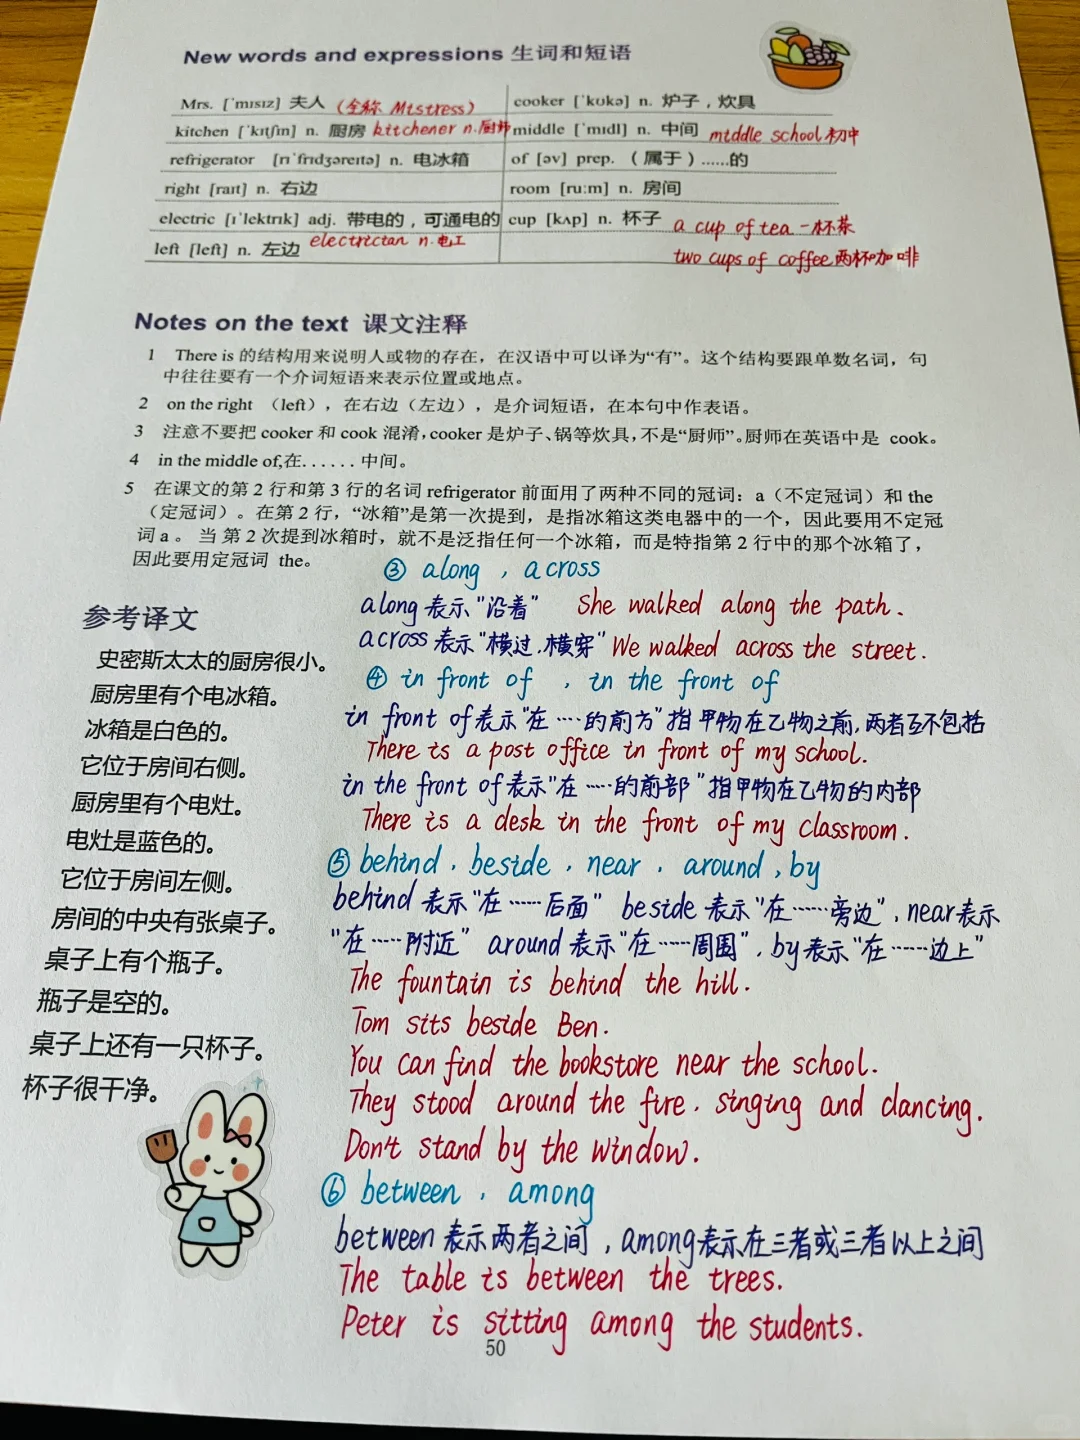 New words and expressions 生词和短语
Mrs. [ˈmɪsɪz] 夫人 (全称 Mistress)
cooker [ˈkʊkə] n. 炉子，炊具
kitchen [ˈkɪtʃɪn] n. 厨房 kitchener n.厨师
middle [ˈmɪdl] n. 中间 middle school 初中
refrigerator [rɪˈfrɪdʒəreɪtə] n. 电冰箱
of [əv] prep. （属于）……的
right [raɪt] n. 右边
room [ru:m] n. 房间
electric [ɪˈlektrɪk] adj. 带电的，可通电的
cup [kʌp] n. 杯子 a cup of tea 一杯茶
left [left] n. 左边 electrician n.电工
two cups of coffee 两杯咖啡
Notes on the text 课文注释
1 There is 的结构用来说明人或物的存在，在汉语中可以译为“有”。这个结构要跟单数名词，句
中往往要有一个介词短语来表示位置或地点。
2 on the right （left），在右边（左边），是介词短语，在本句中作表语。
3 注意不要把 cooker 和 cook 混淆，cooker 是炉子、锅等炊具，不是“厨师”。厨师在英语中是 cook。
4 in the middle of,在......中间。
5 在课文的第 2 行和第 3 行的名词 refrigerator 前面用了两种不同的冠词：a（不定冠词）和 the
（定冠词）。在第 2 行，“冰箱”是第一次提到，是指冰箱这类电器中的一个，因此要用不定冠
词 a 。 当 第 2 次提到冰箱时，就不是泛指任何一个冰箱，而是特指第 2 行中的那个冰箱了，
因此要用定冠词 the。
③ along , across
along 表示“沿着” She walked along the path.
across 表示“横过,横穿” We walked across the street.
④ in front of , in the front of
in front of 表示“在……的前方”指甲物在乙物之前,两者互不包括
There is a post office in front of my school.
in the front of 表示“在……的前部”指甲物在乙物的内部
There is a desk in the front of my classroom.
⑤ behind , beside , near , around , by
behind 表示“在……后面” beside 表示“在……旁边”, near 表示
“在……附近” around 表示“在……周围”, by 表示“在……边上”
The fountain is behind the hill.
Tom sits beside Ben.
You can find the bookstore near the school.
They stood around the fire, singing and dancing.
Don't stand by the window.
⑥ between , among
between 表示两者之间 , among 表示在三者或三者以上之间
The table is between the trees.
Peter is sitting among the students.
参考译文
史密斯太太的厨房很小。
厨房里有个电冰箱。
冰箱是白色的。
它位于房间右侧。
厨房里有个电灶。
电灶是蓝色的。
它位于房间左侧。
房间的中央有张桌子。
桌子上有个瓶子。
瓶子是空的。
桌子上还有一只杯子。
杯子很干净。
50